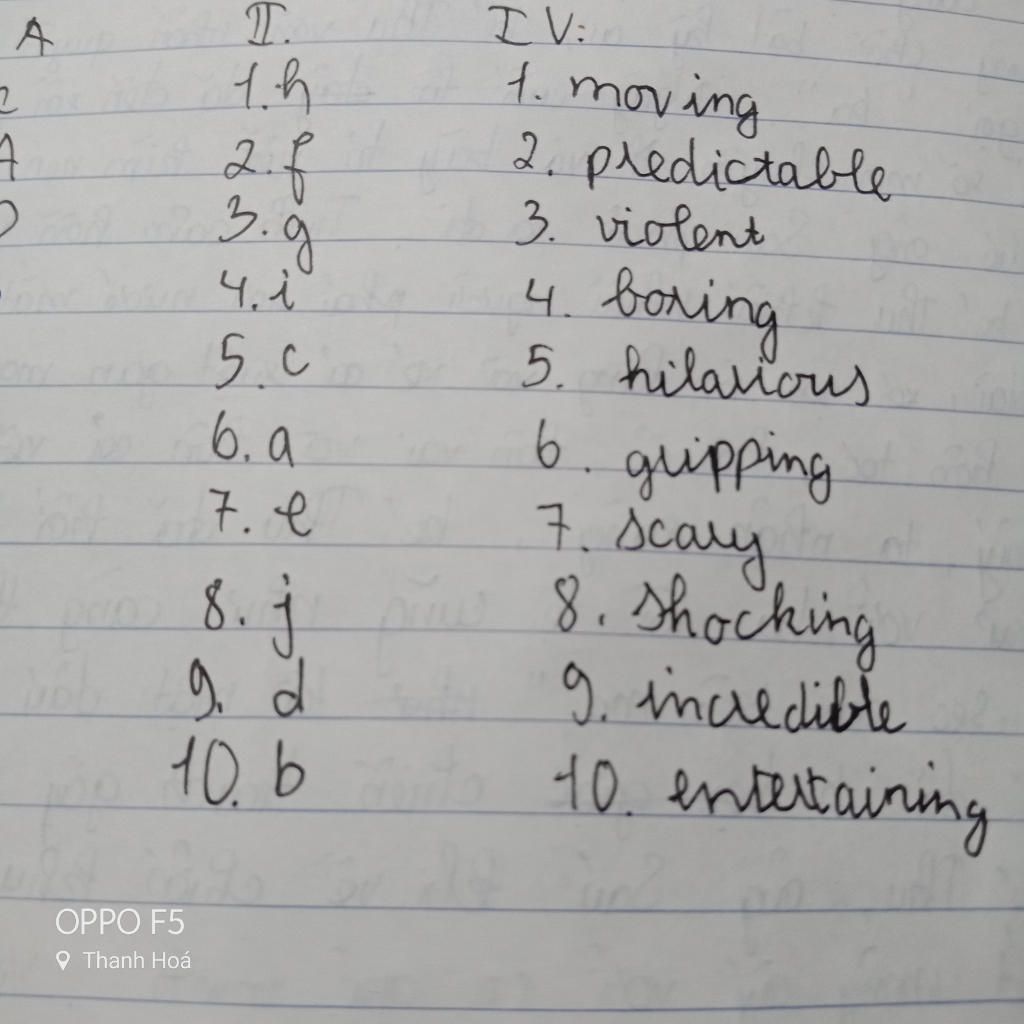 A II. IV:
1. h 1. moving
A 2. f 2. predictable
3. g 3. violent
4. i 4. boring
5. c 5. hilarious
6. a 6. gripping
7. e 7. scary
8. j 8. shocking
9. d 9. incredible
10. b 10. entertaining
OPPO F5
Thanh Hoá